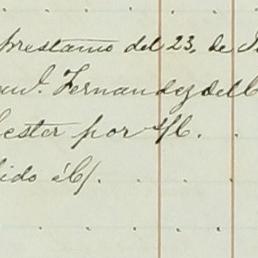 prestamo del 23, de
Fernandez del C
ester por s/c.
ido á C/.